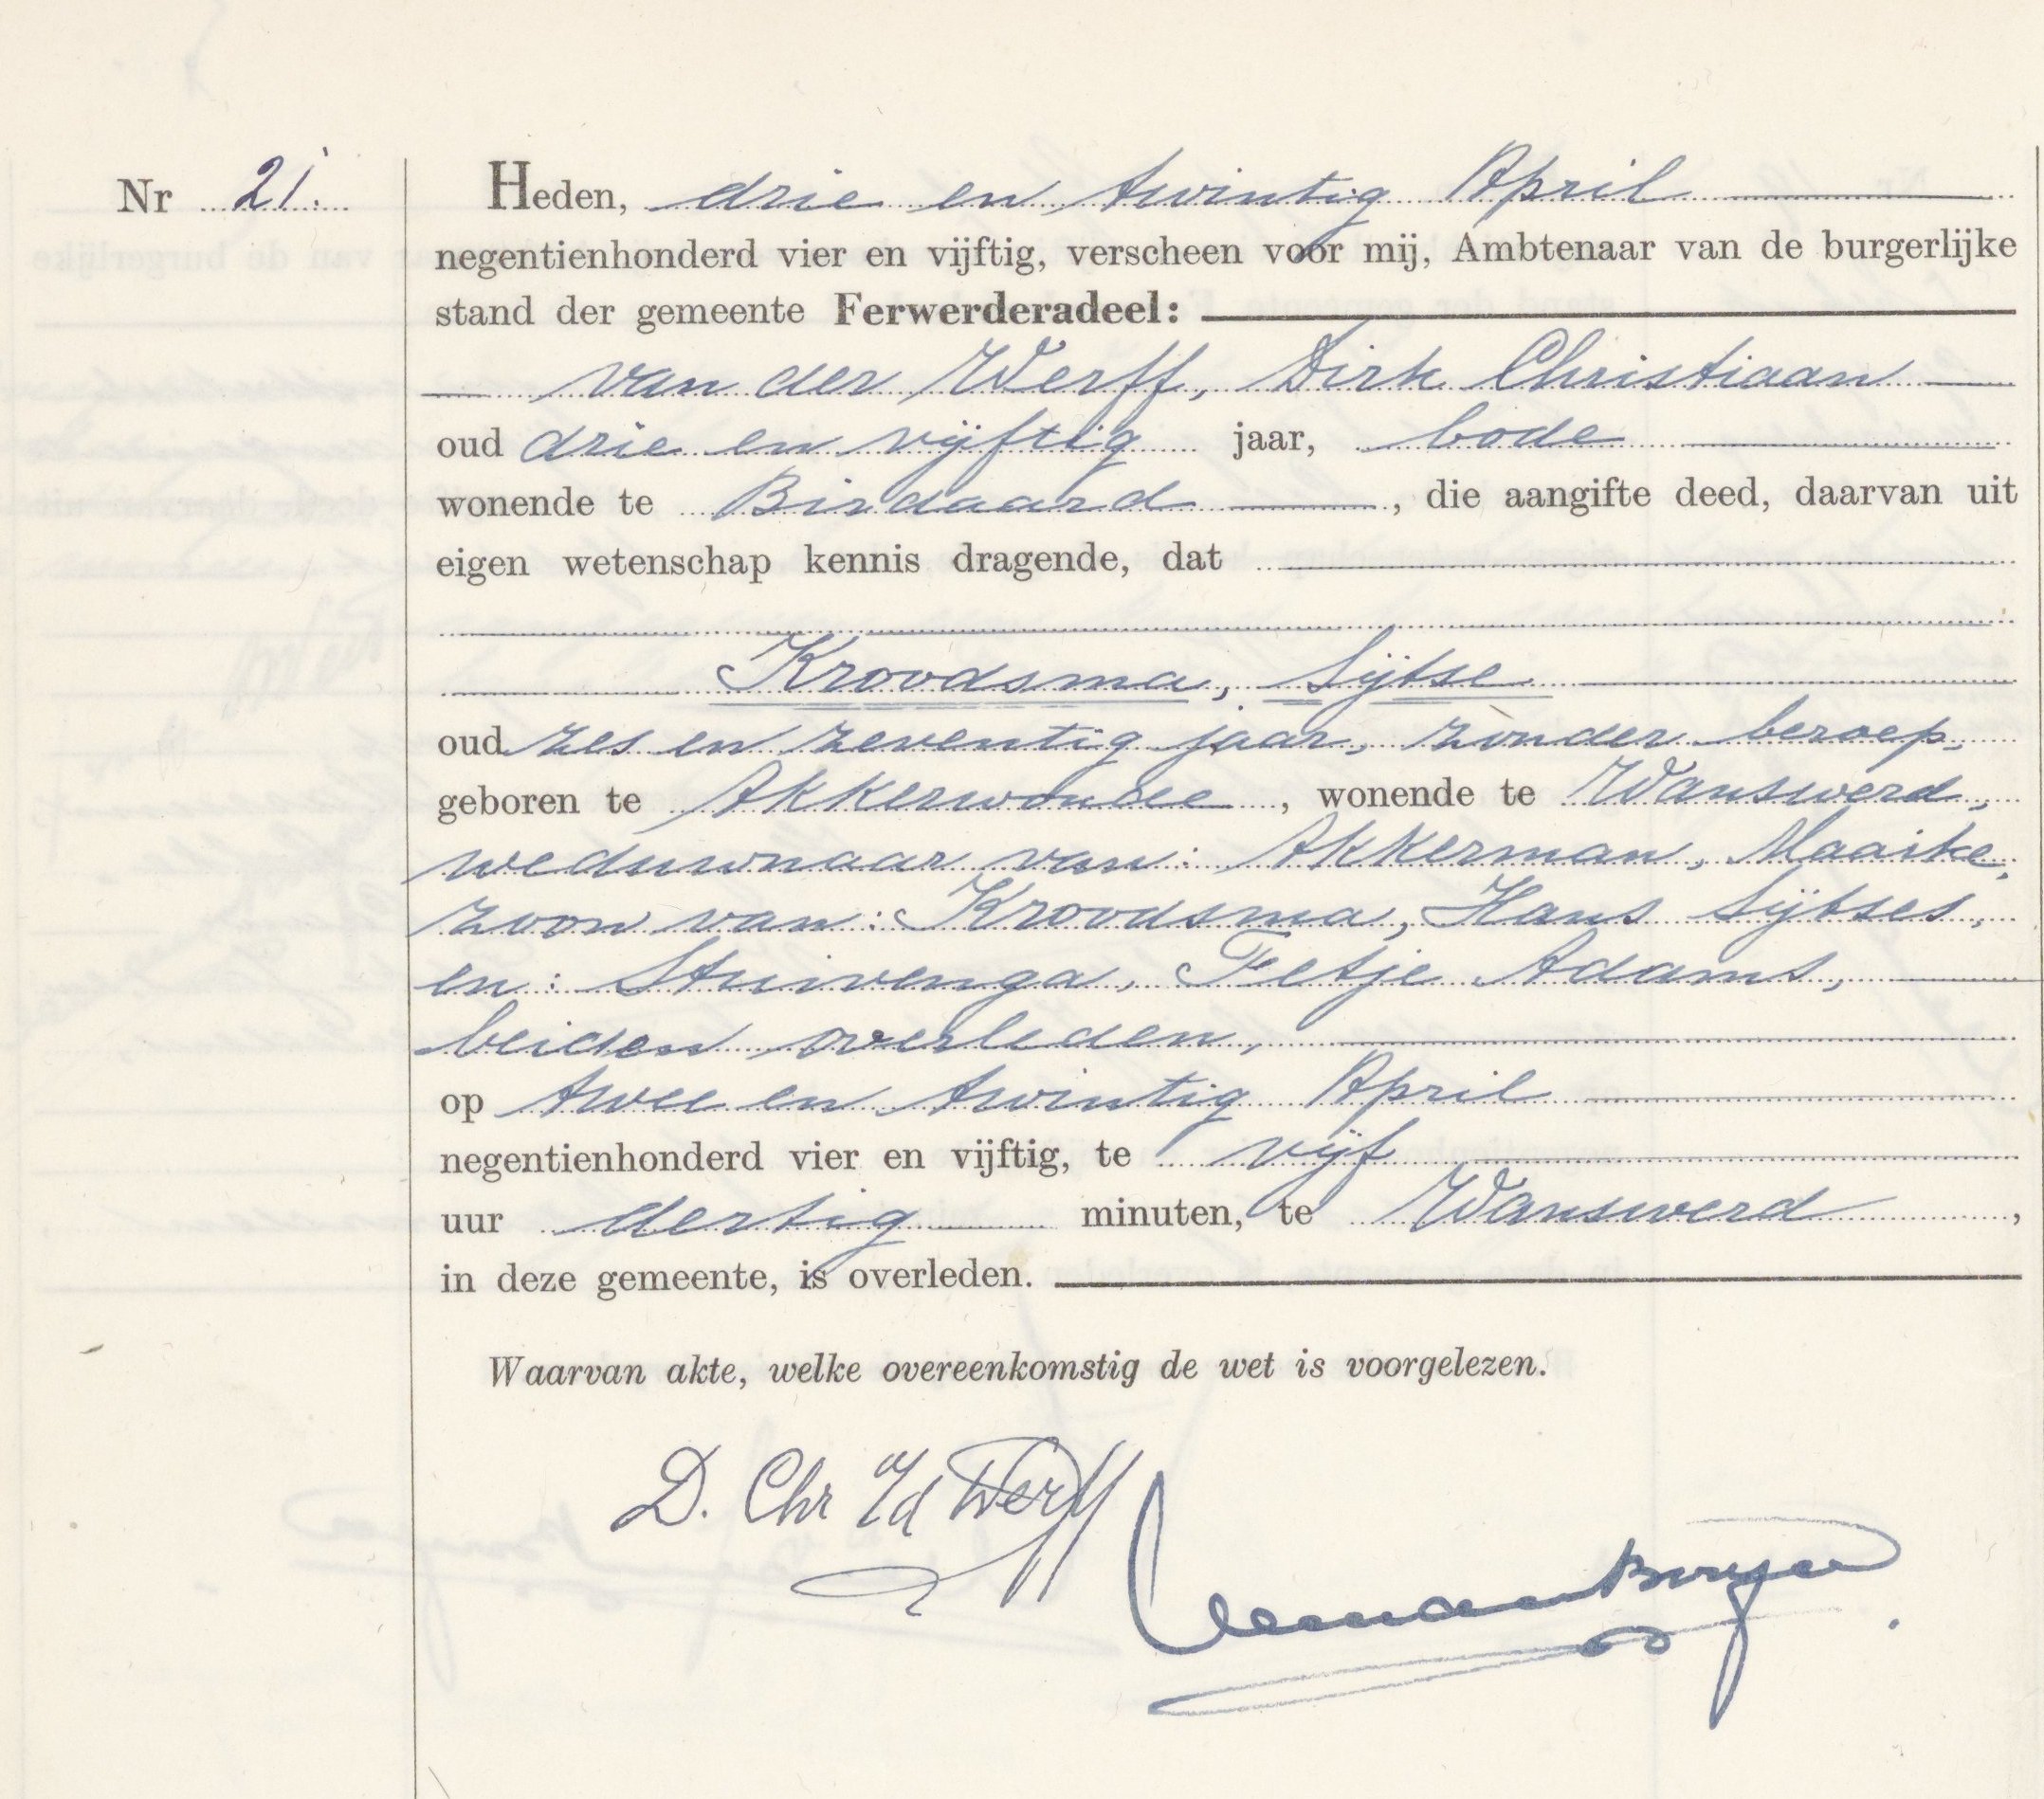 Nr 21.
Heden, drie en twintig April
negentienhonderd vier en vijftig, verscheen voor mij, Ambtenaar van de burgerlijke
stand der gemeente Ferwerderadeel:
van der Werff, Dirk Christiaan
oud drie en vijftig jaar, bode
wonende te Birdaard, die aangifte deed, daarvan uit
eigen wetenschap kennis dragende, dat
Kroodsma, Sijtse
oud zes en zeventig jaar, zonder beroep,
geboren te Akkerwoude, wonende te Wanswerd,
weduwnaar van: Akkerman, Maaike,
zoon van: Kroodsma, Hans Sijtses,
en: Stuivenga, Fetje Adams,
beiden overleden,
op twee en twintig April
negentienhonderd vier en vijftig, te vijf
uur dertig minuten, te Wanswerd,
in deze gemeente, is overleden.
Waarvan akte, welke overeenkomstig de wet is voorgelezen.
D. Chr v/d Werff